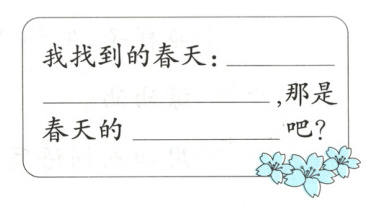 我找到的春天：________
________________,那是
春天的 __________ 吧?